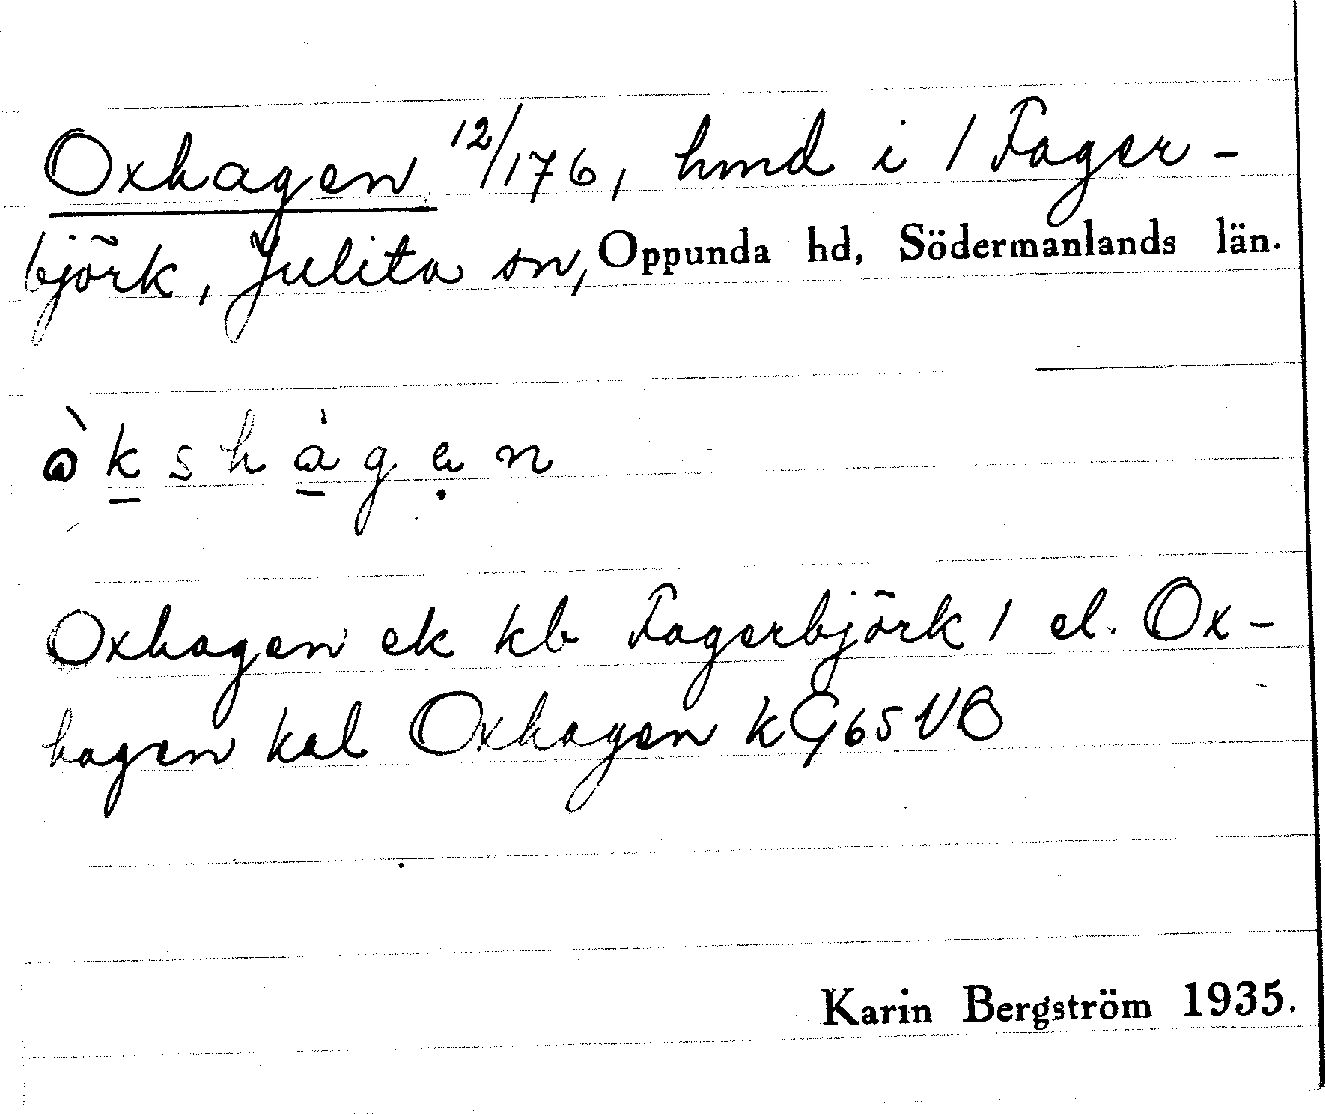 Oxhagen 12/176, hmd i 1 Fager-
björk, Julita sn, Oppunda hd, Södermanlands län.
ὼkshàgẹn
Oxhagen ek kb Fagerbjörk 1 el. Ox-
hagen kal Oxhagen k G65VB
Karin Bergström 1935.